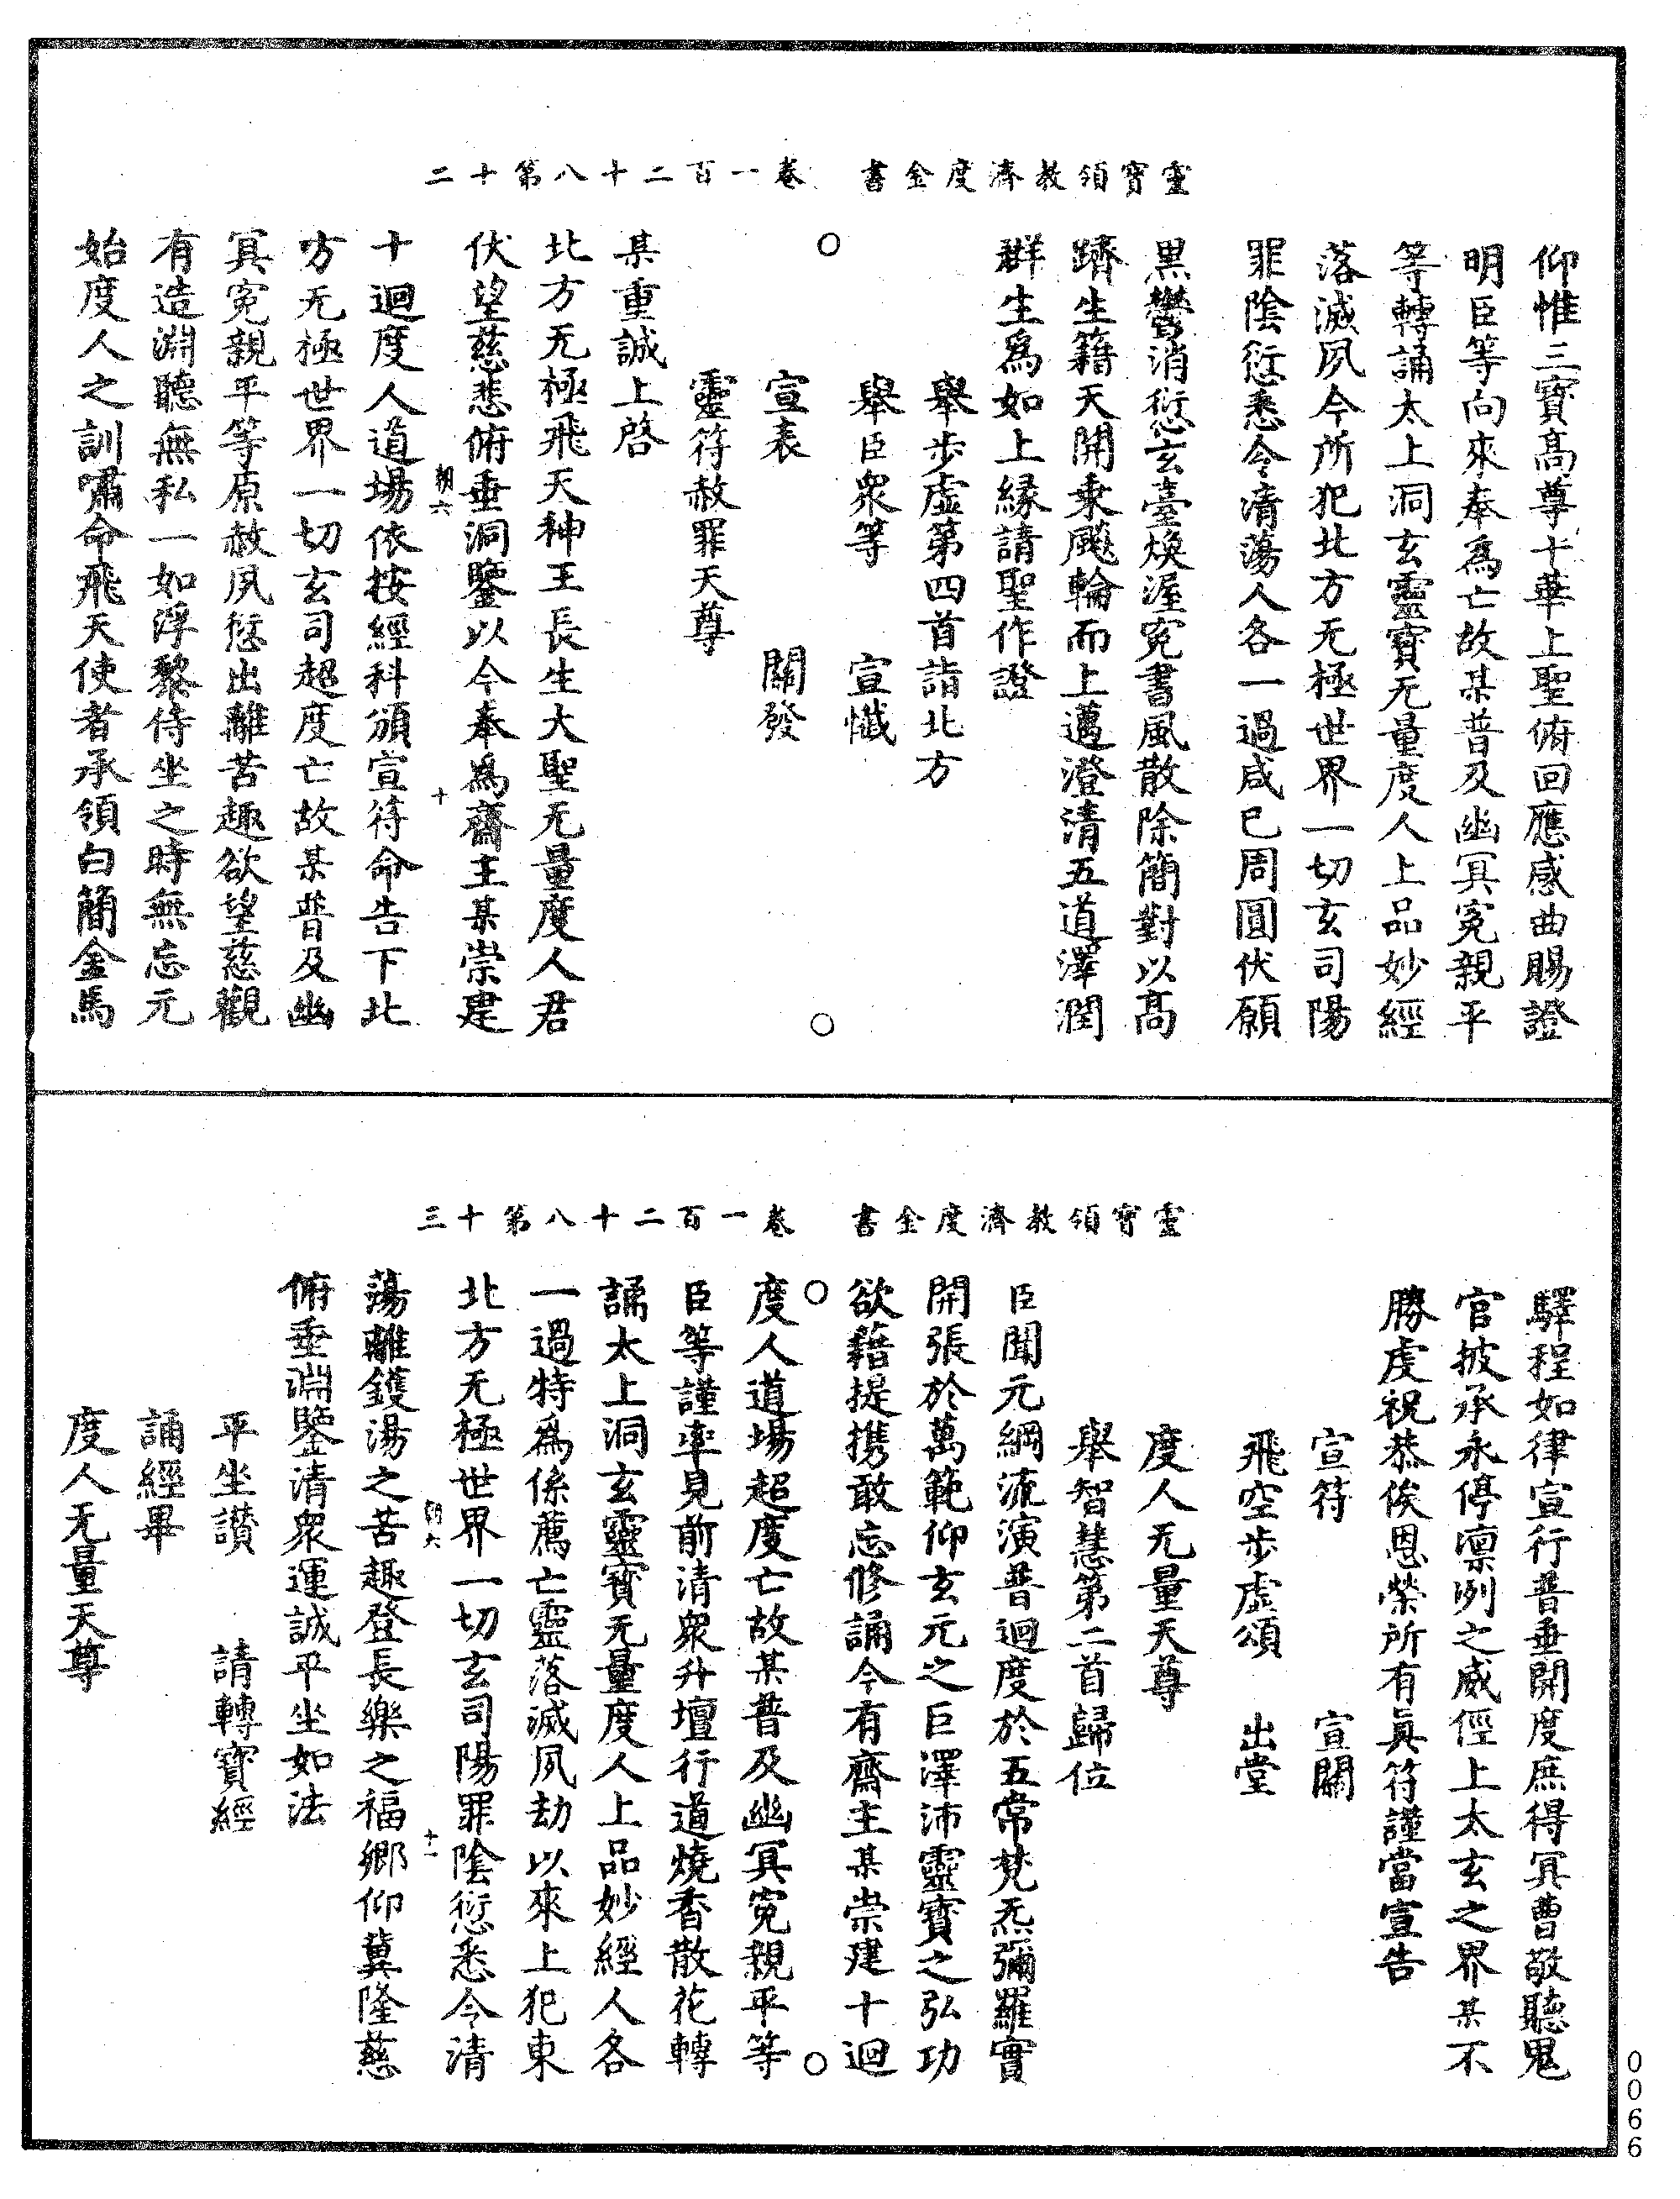 靈寶領教濟度金書　卷一百二十八第十二
仰惟三寶高尊十華上聖俯回應感曲賜證
明臣等向來奉爲亡故某普及幽冥寃親平
等轉誦太上洞玄靈寶无量度人上品妙經
落滅夙今所犯北方无極世界一切玄司陽
罪陰愆悉令清蕩人各一過咸已周圓伏願
黑黌消愆玄臺煥渥寃書風散除簡對以高
躋生籍天開乘飈輪而上邁澄清五道澤潤
群生爲如上緣請聖作證
舉步虛第四首詣北方
舉臣衆等　宣懺
宣表　　關發
靈符赦罪天尊
某重誠上啓
北方无極飛天神王長生大聖无量度人君
伏望慈悲俯垂洞鑒以今奉爲齋主某崇建
朝六　十
十迴度人道場依按經科頒宣符命告下北
方无極世界一切玄司超度亡故某普及幽
冥寃親平等原赦夙愆出離苦趣欲望慈觀
有造淵聽無私一如浮黎侍坐之時無忘元
始度人之訓嘯命飛天使者承領白簡金馬
靈寶領教濟度金書　卷一百二十八第十三
驛程如律宣行普垂開度庶得冥曹敬聽鬼
官披承永停凛冽之威徑上太玄之界某不
勝虔祝恭俟恩榮所有真符謹當宣告
宣符　　宣關
飛空步虛頌　出堂
度人无量天尊
舉智慧第二首歸位
臣聞元綱流演普迴度於五常梵炁彌羅實
開張於萬範仰玄元之巨澤沛靈寶之弘功
欲藉提携敢忘修誦今有齋主某崇建十迴
度人道場超度亡故某普及幽冥寃親平等
臣等謹率見前清衆升壇行道燒香散花轉
誦太上洞玄靈寶无量度人上品妙經人各
一過特爲係薦亡靈落滅夙劫以來上犯東
北方无極世界一切玄司陽罪陰愆悉令清
朝六　十一
蕩離鑊湯之苦趣登長樂之福鄉仰冀隆慈
俯垂淵鑒清衆運誠平坐如法
平坐讃　請轉寶經
誦經畢
度人无量天尊
0066